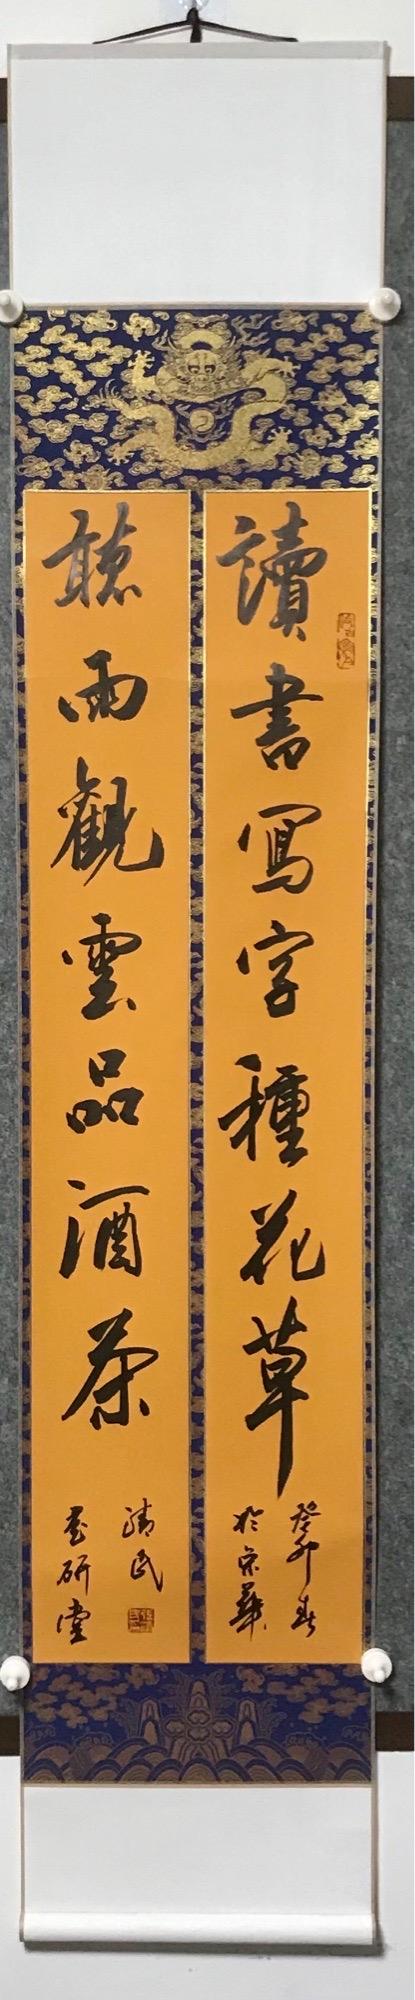 讀書寫字種花草
癸卯春
於京華
聽雨觀雲品酒茶
清民
書研堂